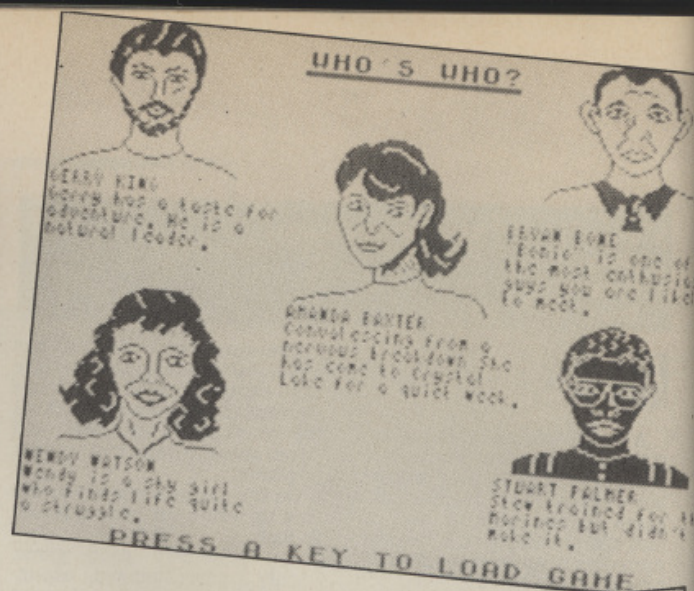 WHO'S WHO?
GERRY KING
Gerry has a taste for
adventure. He is a
natural leader.
AMANDA BAXTER
Convalescing from a
nervous breakdown she
has come to Crystal
Lake for a quiet week.
BRYAN BONE
"Bonio" is one of
the most
guys you are
to meet.
WENDY WATSON
Wendy is a shy girl
who finds life quite
a struggle.
STUART PALMER
Stew trained for
Marines but didn't
make it.
PRESS A KEY TO LOAD GAME